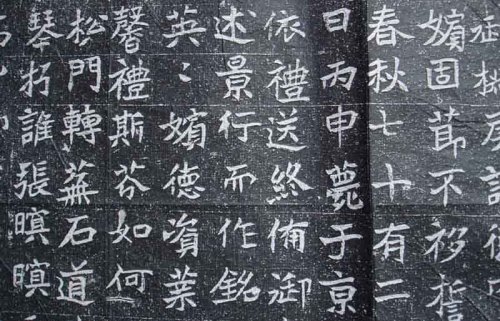 嬪固莭不移誓
春秋七十有二
日丙申薨于京
依禮送終侑御
述景行而作銘
英〻嬪德資葉
馨禮斯芬如何
松門轉蕪石道
琴朽誰張暝暝